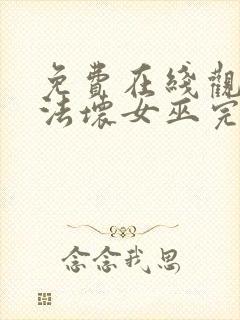 免費在綫觀
法壞女巫完
念念我思